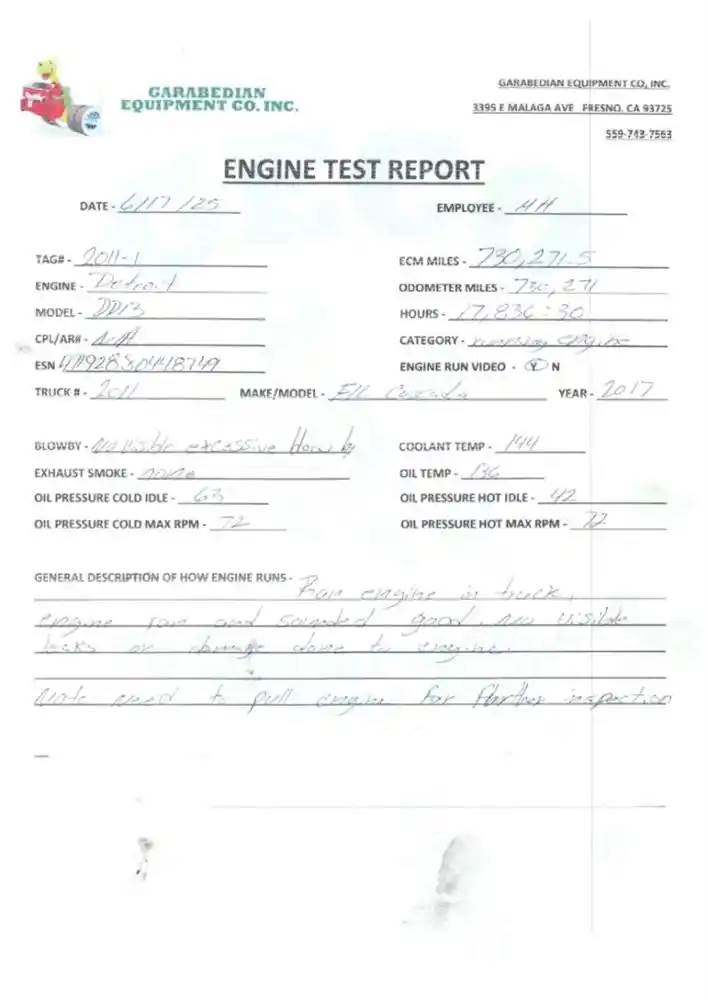 GARABEDIAN
EQUIPMENT CO. INC.
GARABEDIAN EQUIPMENT CO, INC.
3395 E MALAGA AVE FRESNO, CA 93725
559-743-7563
ENGINE TEST REPORT
DATE - 6/17/25 EMPLOYEE - MH
TAG# - 2011-1 ECM MILES - 730,271.5
ENGINE - Detroit ODOMETER MILES - 730,271
MODEL - DD13 HOURS - 17,836:30
CPL/AR# - N/A CATEGORY - running engine
ESN ENGINE RUN VIDEO - Y N
TRUCK # - 2011 MAKE/MODEL - Cascadia YEAR - 2017
BLOWBY - No visible excessive blow by COOLANT TEMP - 144
EXHAUST SMOKE - none OIL TEMP - 136
OIL PRESSURE COLD IDLE - 63 OIL PRESSURE HOT IDLE - 42
OIL PRESSURE COLD MAX RPM - 72 OIL PRESSURE HOT MAX RPM - 72
GENERAL DESCRIPTION OF HOW ENGINE RUNS - Ran engine in truck,
engine ran and sounded good. No visible
leaks or damage done to engine.
Note need to pull engine for further inspection